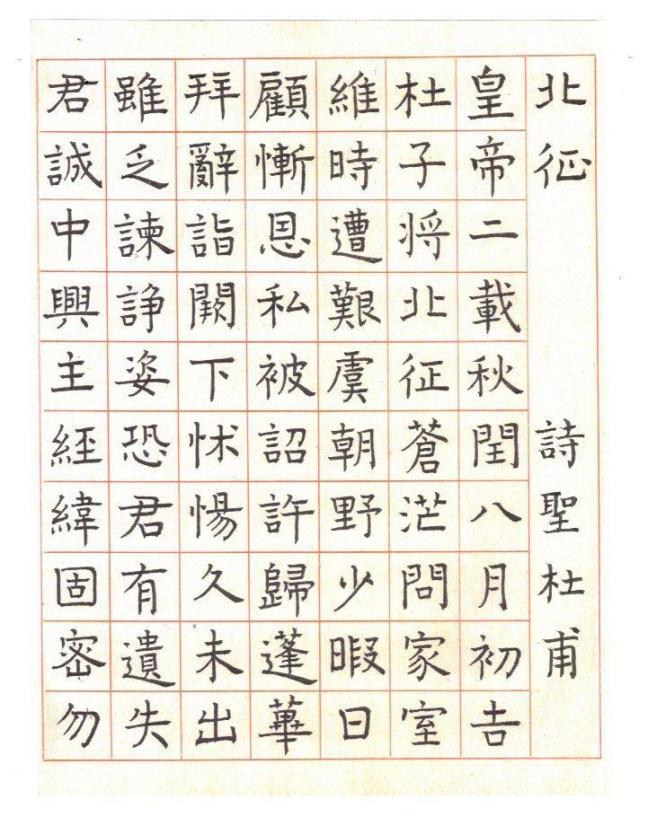 北征 詩聖杜甫
皇帝二載秋閏八月初吉
杜子将北征蒼茫問家室
維時遭艱虞朝野少暇日
顧慚恩私被詔許歸蓬蓽
拜辭詣闕下怵惕久未出
雖乏諫諍姿恐君有遺失
君誠中興主經緯固密勿